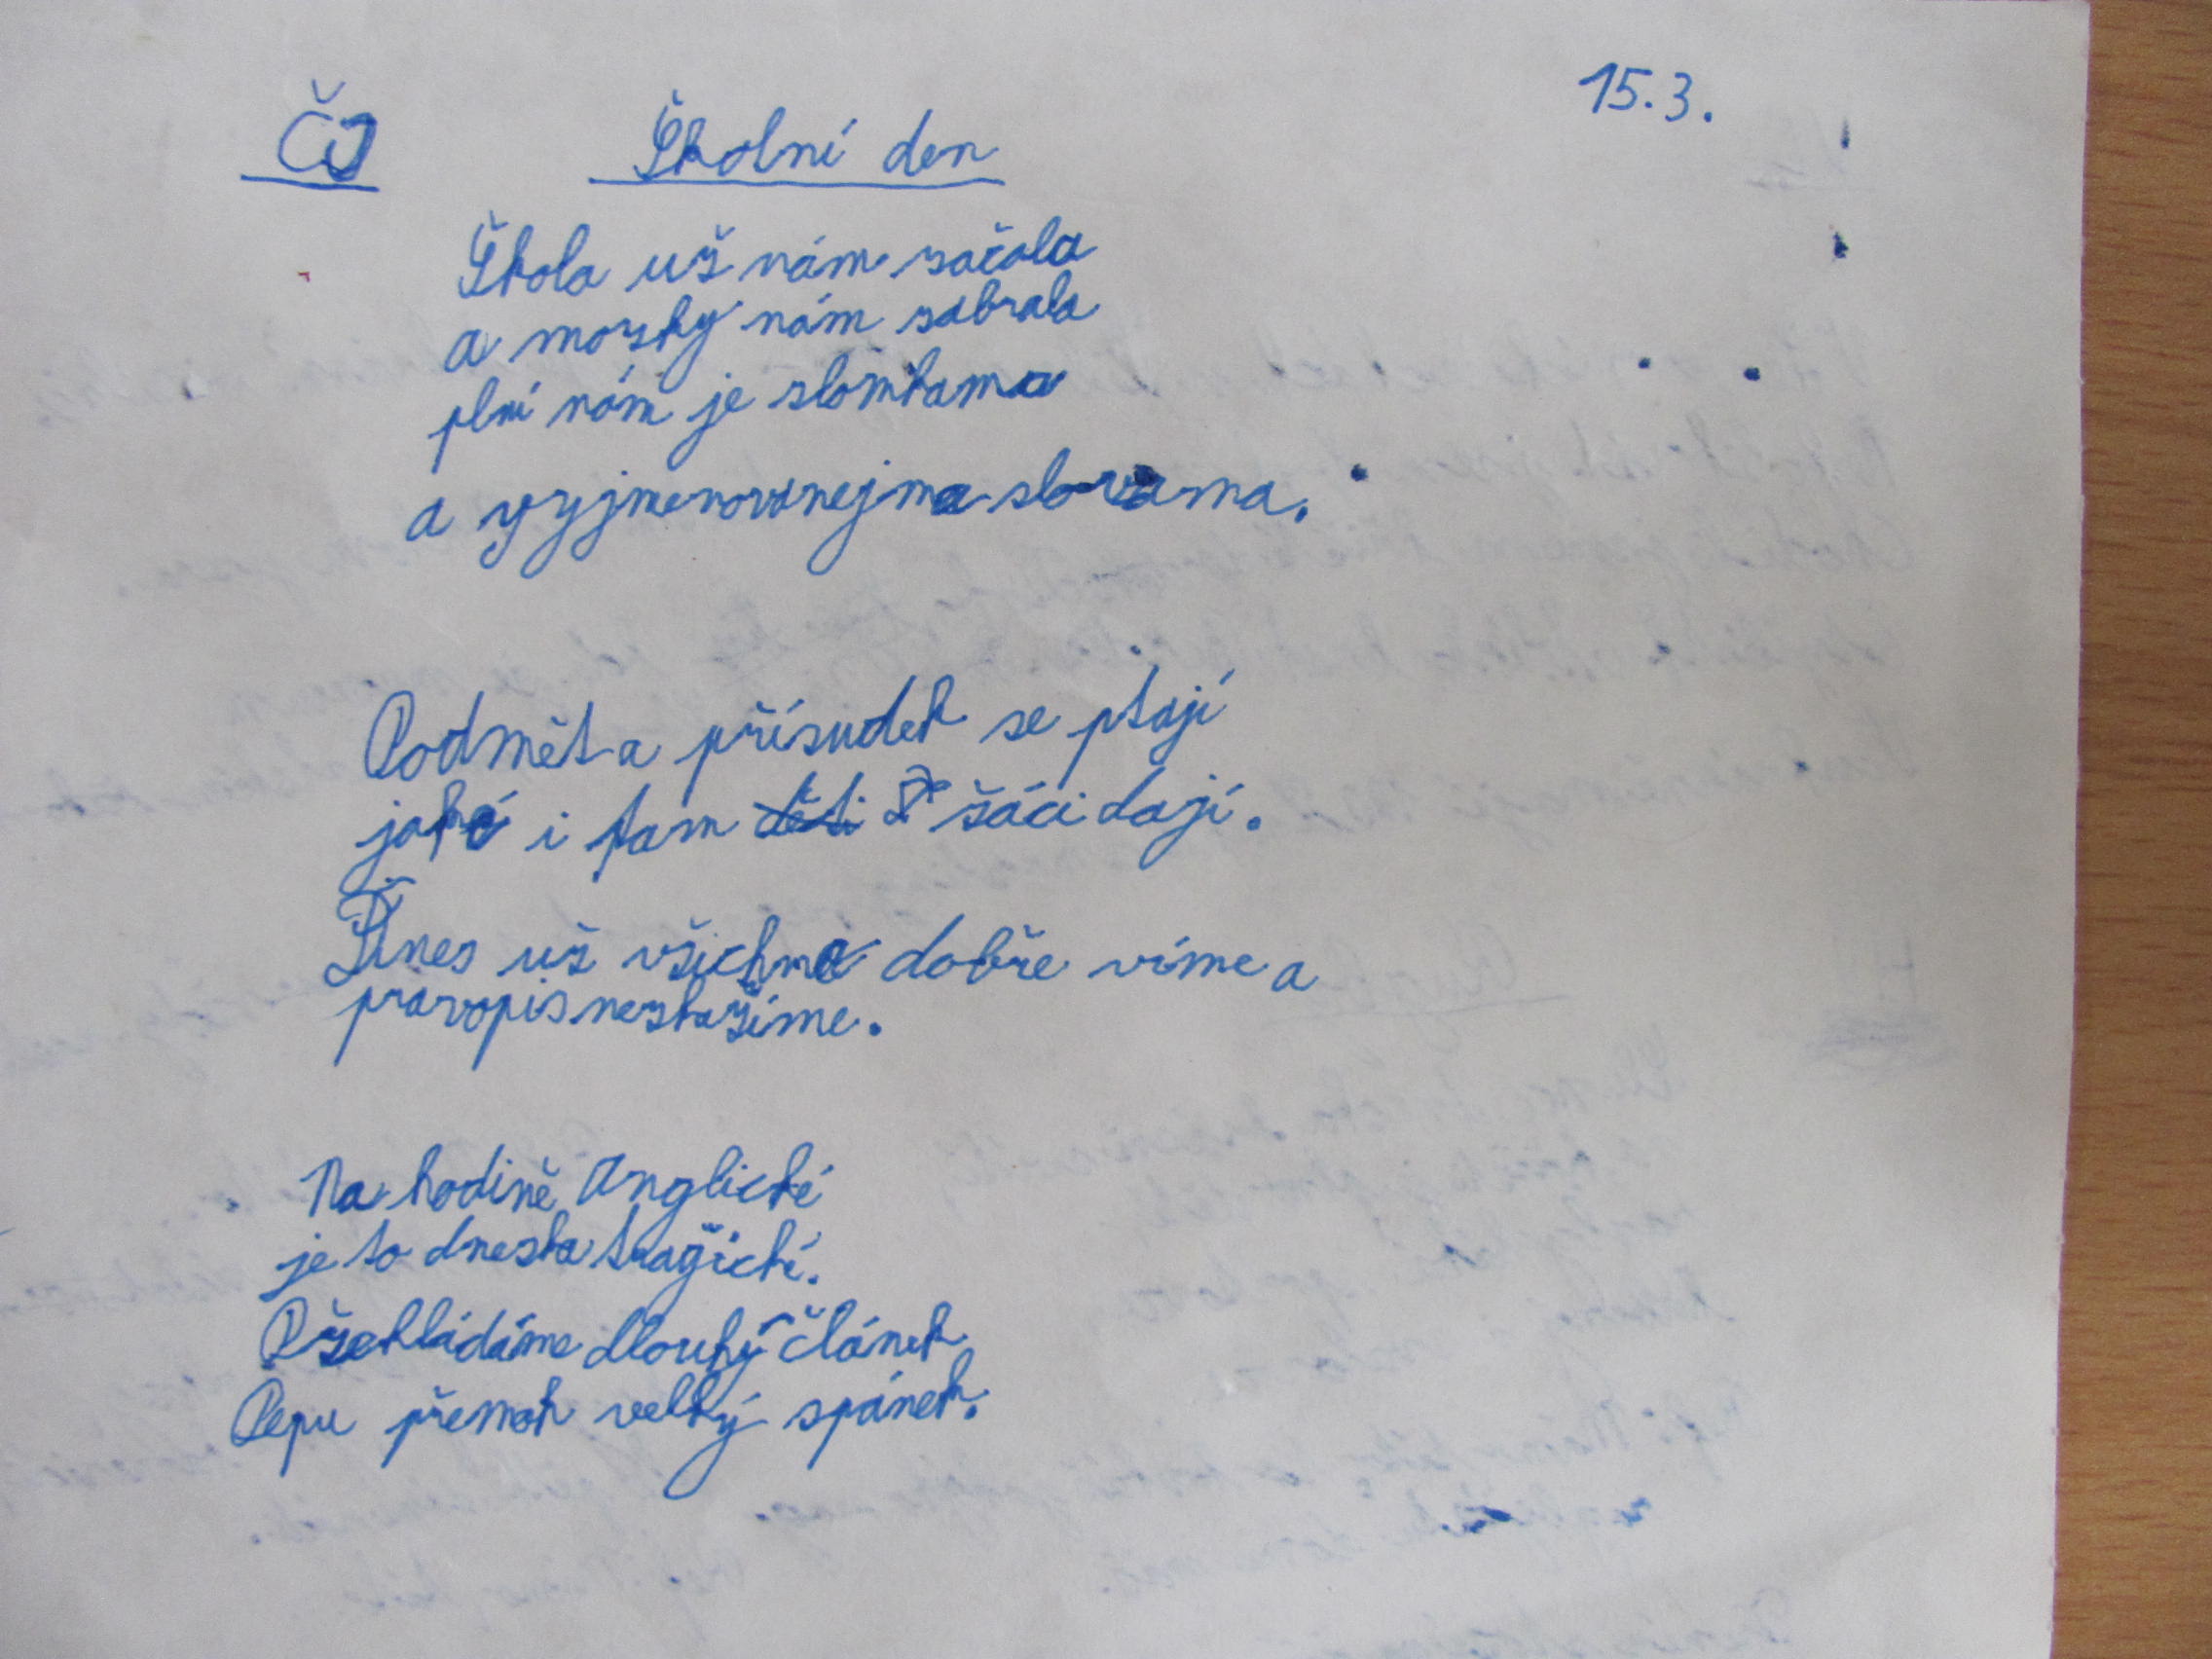 ČJ Školní den 15.3.
Škola už nám začala
a mozky nám zabrala
plní nám je slomkama
a vyjmenovanejma slovama.
Podmět a přísudek se ptají
jaké i tam děti žáci dají.
Dnes už všichne dobře víme a
pravopis nezkazíme.
Na hodině Anglické
je to dneska tragické.
Překládáme dlouhý článek
Pepu přemoh velký spánek.